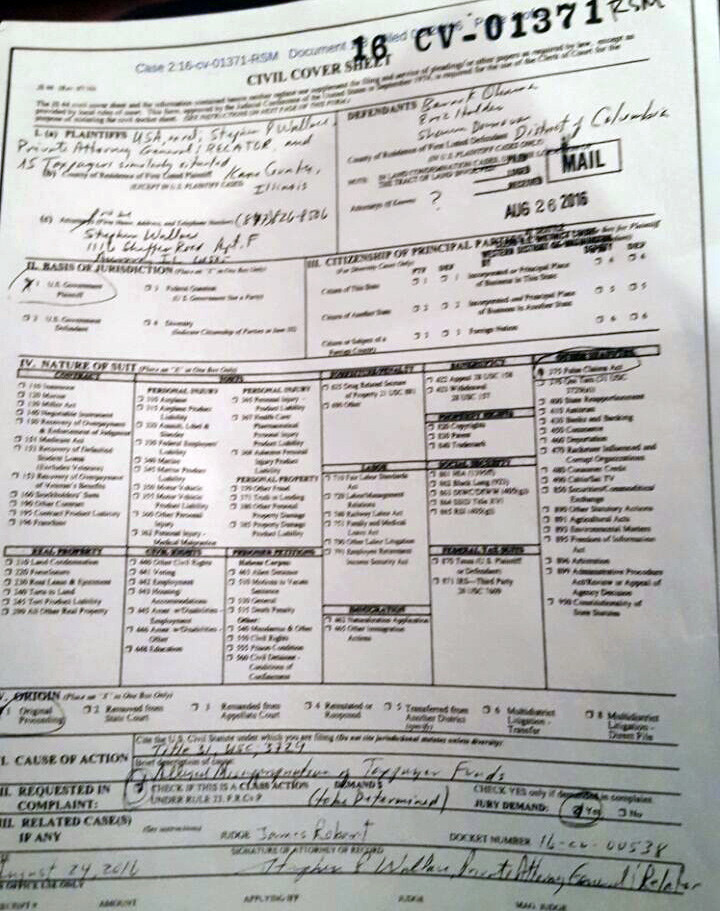 16 CV-01371 RSM
Case 2:16-cv-01371-RSM Document
CIVIL COVER SHEET
I. (a) PLAINTIFFS USA, exrel, Stephen P Wallace,
Private Attorney General; RELATOR, and
Taxpayers similarly situated
(b) County of Residence of First Listed Plaintiff Kane County,
(EXCEPT IN U.S. PLAINTIFF CASES) Illinois
Stephen Wallace
Road Apt. F
DEFENDANTS Barack Obama
Eric Holder
Shaun Donovan
County of Residence of First Listed Defendant District of Columbia
(IN U.S. PLAINTIFF CASES ONLY)
NOTE: IN LAND CONDEMNATION CASES,
THE TRACT OF LAND INVOLVED
Attorneys (If Known) ?
FILED
LODGED
RECEIVED
MAIL
AUG 26 2016
II. BASIS OF JURISDICTION (Place an "X" in One Box Only)
X 1 U.S. Government
Plaintiff
3 Federal Question
(U.S. Government Not a Party)
2 U.S. Government
Defendant
4 Diversity
(Indicate Citizenship of Parties in Item III)
III. CITIZENSHIP OF PRINCIPAL PARTIES
(For Diversity Cases Only)
PTF DEF
Citizen of This State 1 1 Incorporated or Principal Place
of Business In This State 4 4
Citizen of Another State 2 2 Incorporated and Principal Place
of Business In Another State 5 5
Citizen or Subject of a
Foreign Country 3 3 Foreign Nation 6 6
IV. NATURE OF SUIT (Place an "X" in One Box Only)
CONTRACT
110 Insurance
120 Marine
130 Miller Act
140 Negotiable Instrument
150 Recovery of Overpayment
& Enforcement of Judgment
151 Medicare Act
152 Recovery of Defaulted
Student Loans
(Excludes Veterans)
153 Recovery of Overpayment
of Veteran's Benefits
160 Stockholders' Suits
190 Other Contract
195 Contract Product Liability
196 Franchise
TORTS
PERSONAL INJURY
310 Airplane
315 Airplane Product
Liability
320 Assault, Libel &
Slander
330 Federal Employers'
Liability
340 Marine
345 Marine Product
Liability
350 Motor Vehicle
355 Motor Vehicle
Product Liability
360 Other Personal
Injury
362 Personal Injury -
Medical Malpractice
PERSONAL INJURY
365 Personal Injury -
Product Liability
367 Health Care/
Pharmaceutical
Personal Injury
Product Liability
368 Asbestos Personal
Injury Product
Liability
PERSONAL PROPERTY
370 Other Fraud
371 Truth in Lending
380 Other Personal
Property Damage
385 Property Damage
Product Liability
FORFEITURE/PENALTY
625 Drug Related Seizure
of Property 21 USC 881
690 Other
LABOR
710 Fair Labor Standards
Act
720 Labor/Management
Relations
740 Railway Labor Act
751 Family and Medical
Leave Act
790 Other Labor Litigation
791 Employee Retirement
Income Security Act
IMMIGRATION
462 Naturalization Application
465 Other Immigration
Actions
BANKRUPTCY
422 Appeal 28 USC 158
423 Withdrawal
28 USC 157
PROPERTY RIGHTS
820 Copyrights
830 Patent
840 Trademark
SOCIAL SECURITY
861 HIA (1395ff)
862 Black Lung (923)
863 DIWC/DIWW (405(g))
864 SSID Title XVI
865 RSI (405(g))
FEDERAL TAX SUITS
870 Taxes (U.S. Plaintiff
or Defendant)
871 IRS—Third Party
26 USC 7609
OTHER STATUTES
375 False Claims Act
376 Qui Tam (31 USC
3729(a))
400 State Reapportionment
410 Antitrust
430 Banks and Banking
450 Commerce
460 Deportation
470 Racketeer Influenced and
Corrupt Organizations
480 Consumer Credit
490 Cable/Sat TV
850 Securities/Commodities/
Exchange
890 Other Statutory Actions
891 Agricultural Acts
893 Environmental Matters
895 Freedom of Information
Act
896 Arbitration
899 Administrative Procedure
Act/Review or Appeal of
Agency Decision
950 Constitutionality of
State Statutes
REAL PROPERTY
210 Land Condemnation
220 Foreclosure
230 Rent Lease & Ejectment
240 Torts to Land
245 Tort Product Liability
290 All Other Real Property
CIVIL RIGHTS
440 Other Civil Rights
441 Voting
442 Employment
443 Housing/
Accommodations
445 Amer. w/Disabilities -
Employment
446 Amer. w/Disabilities -
Other
448 Education
PRISONER PETITIONS
Habeas Corpus:
463 Alien Detainee
510 Motions to Vacate
Sentence
530 General
535 Death Penalty
Other:
540 Mandamus & Other
550 Civil Rights
555 Prison Condition
560 Civil Detainee -
Conditions of
Confinement
V. ORIGIN (Place an "X" in One Box Only)
1 Original
Proceeding
2 Removed from
State Court
3 Remanded from
Appellate Court
4 Reinstated or
Reopened
5 Transferred from
Another District
(specify)
6 Multidistrict
Litigation -
Transfer
8 Multidistrict
Litigation -
Direct File
I. CAUSE OF ACTION
Cite the U.S. Civil Statute under which you are filing (Do not cite jurisdictional statutes unless diversity):
Title 31, USC, 3729
Brief description of cause:
Alleged Misappropriation of Taxpayer Funds
II. REQUESTED IN
COMPLAINT:
CHECK IF THIS IS A CLASS ACTION
UNDER RULE 23, F.R.Cv.P.
DEMAND $
(to be Determined)
CHECK YES only if demanded in complaint:
JURY DEMAND: Yes No
III. RELATED CASE(S)
IF ANY
(See instructions):
JUDGE James Robart
DOCKET NUMBER 16-cv-00538
August 24, 2016
SIGNATURE OF ATTORNEY OF RECORD
Stephen P Wallace Private Attorney General; Relator
OFFICE USE ONLY
RECEIPT # AMOUNT APPLYING IFP JUDGE MAG. JUDGE